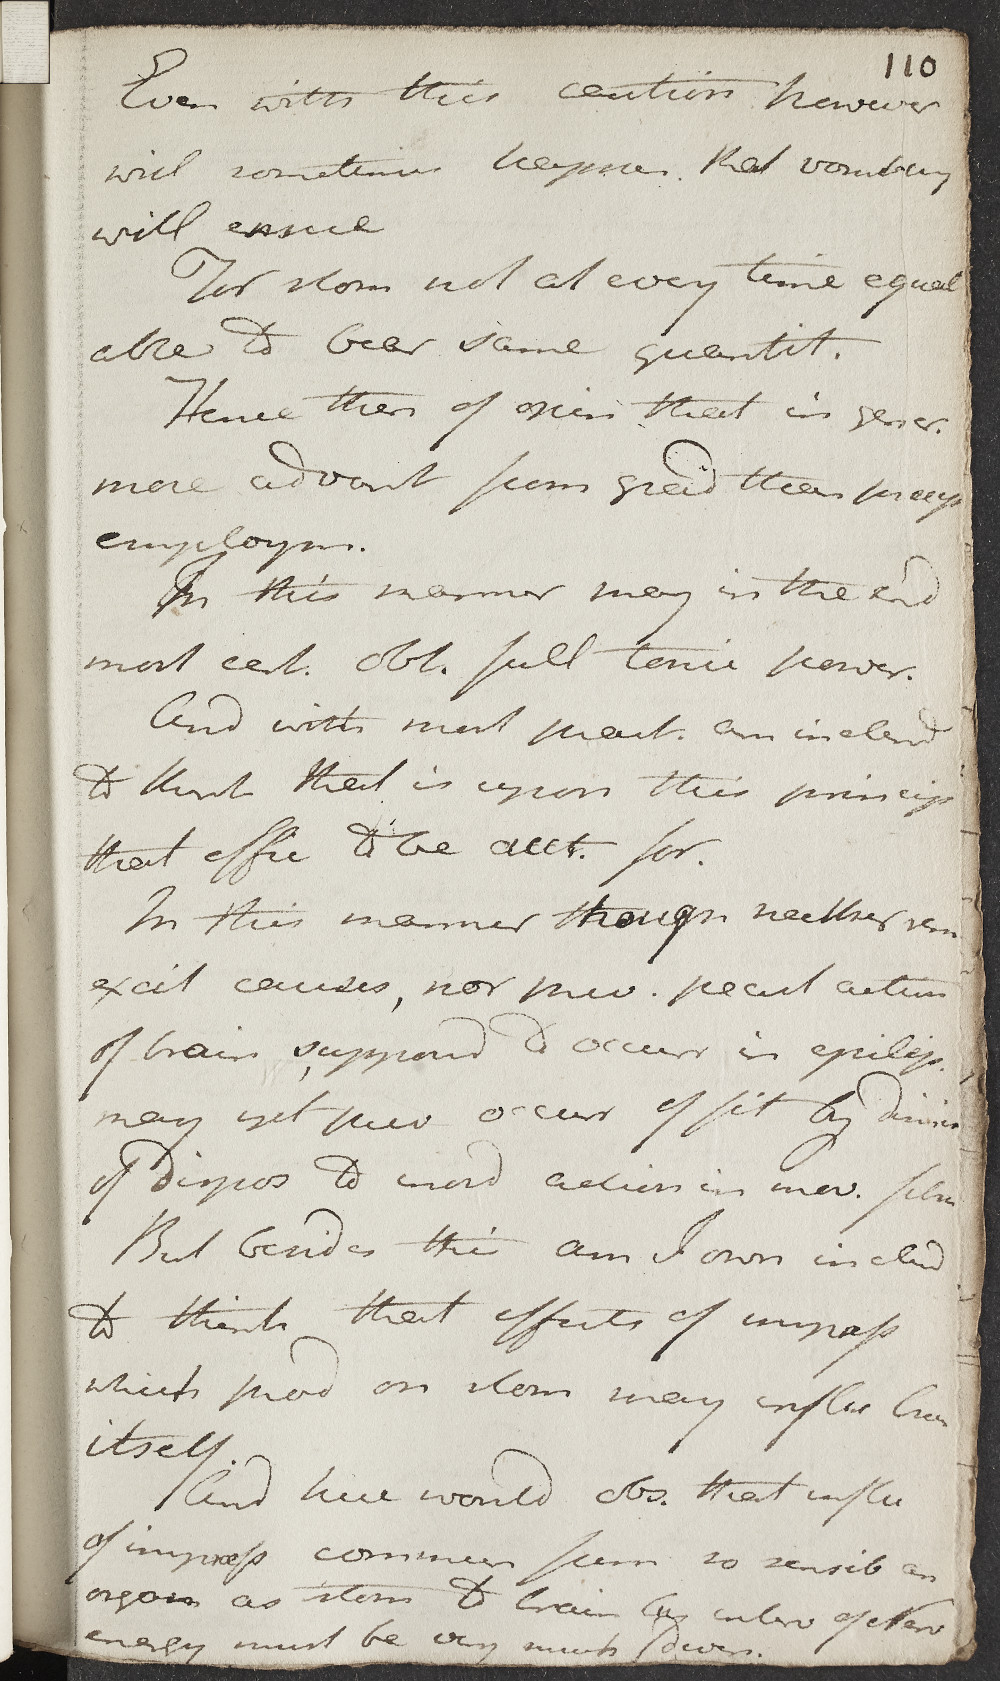 110
Even with this caution however
will sometimes happen. that vomiting
will ensue
For stom not at every time equal
able to bear same quantit.
Hence then of opin that in gener.
more advant from grad than precip
employm.
In this manner may in the end
most cert. obt. full tonic power.
And with most pract. am inclend
to think that is upon this princip
that effic to be acct. for.
In this manner though neither rem
excit causes, nor prev. pecul action
of brain supposd to occur in epilep.
may yet prev occur of fit by dimin
of dispos to inord action in mov. fibr
But besides this am I own inclind
to think that effects of impress
which prod on stom may influ brain
itself.
And here would obs. that influ
of impress commun from so sensib an
organ as stom to brain by interv of Nerv
energy must be very much divers.